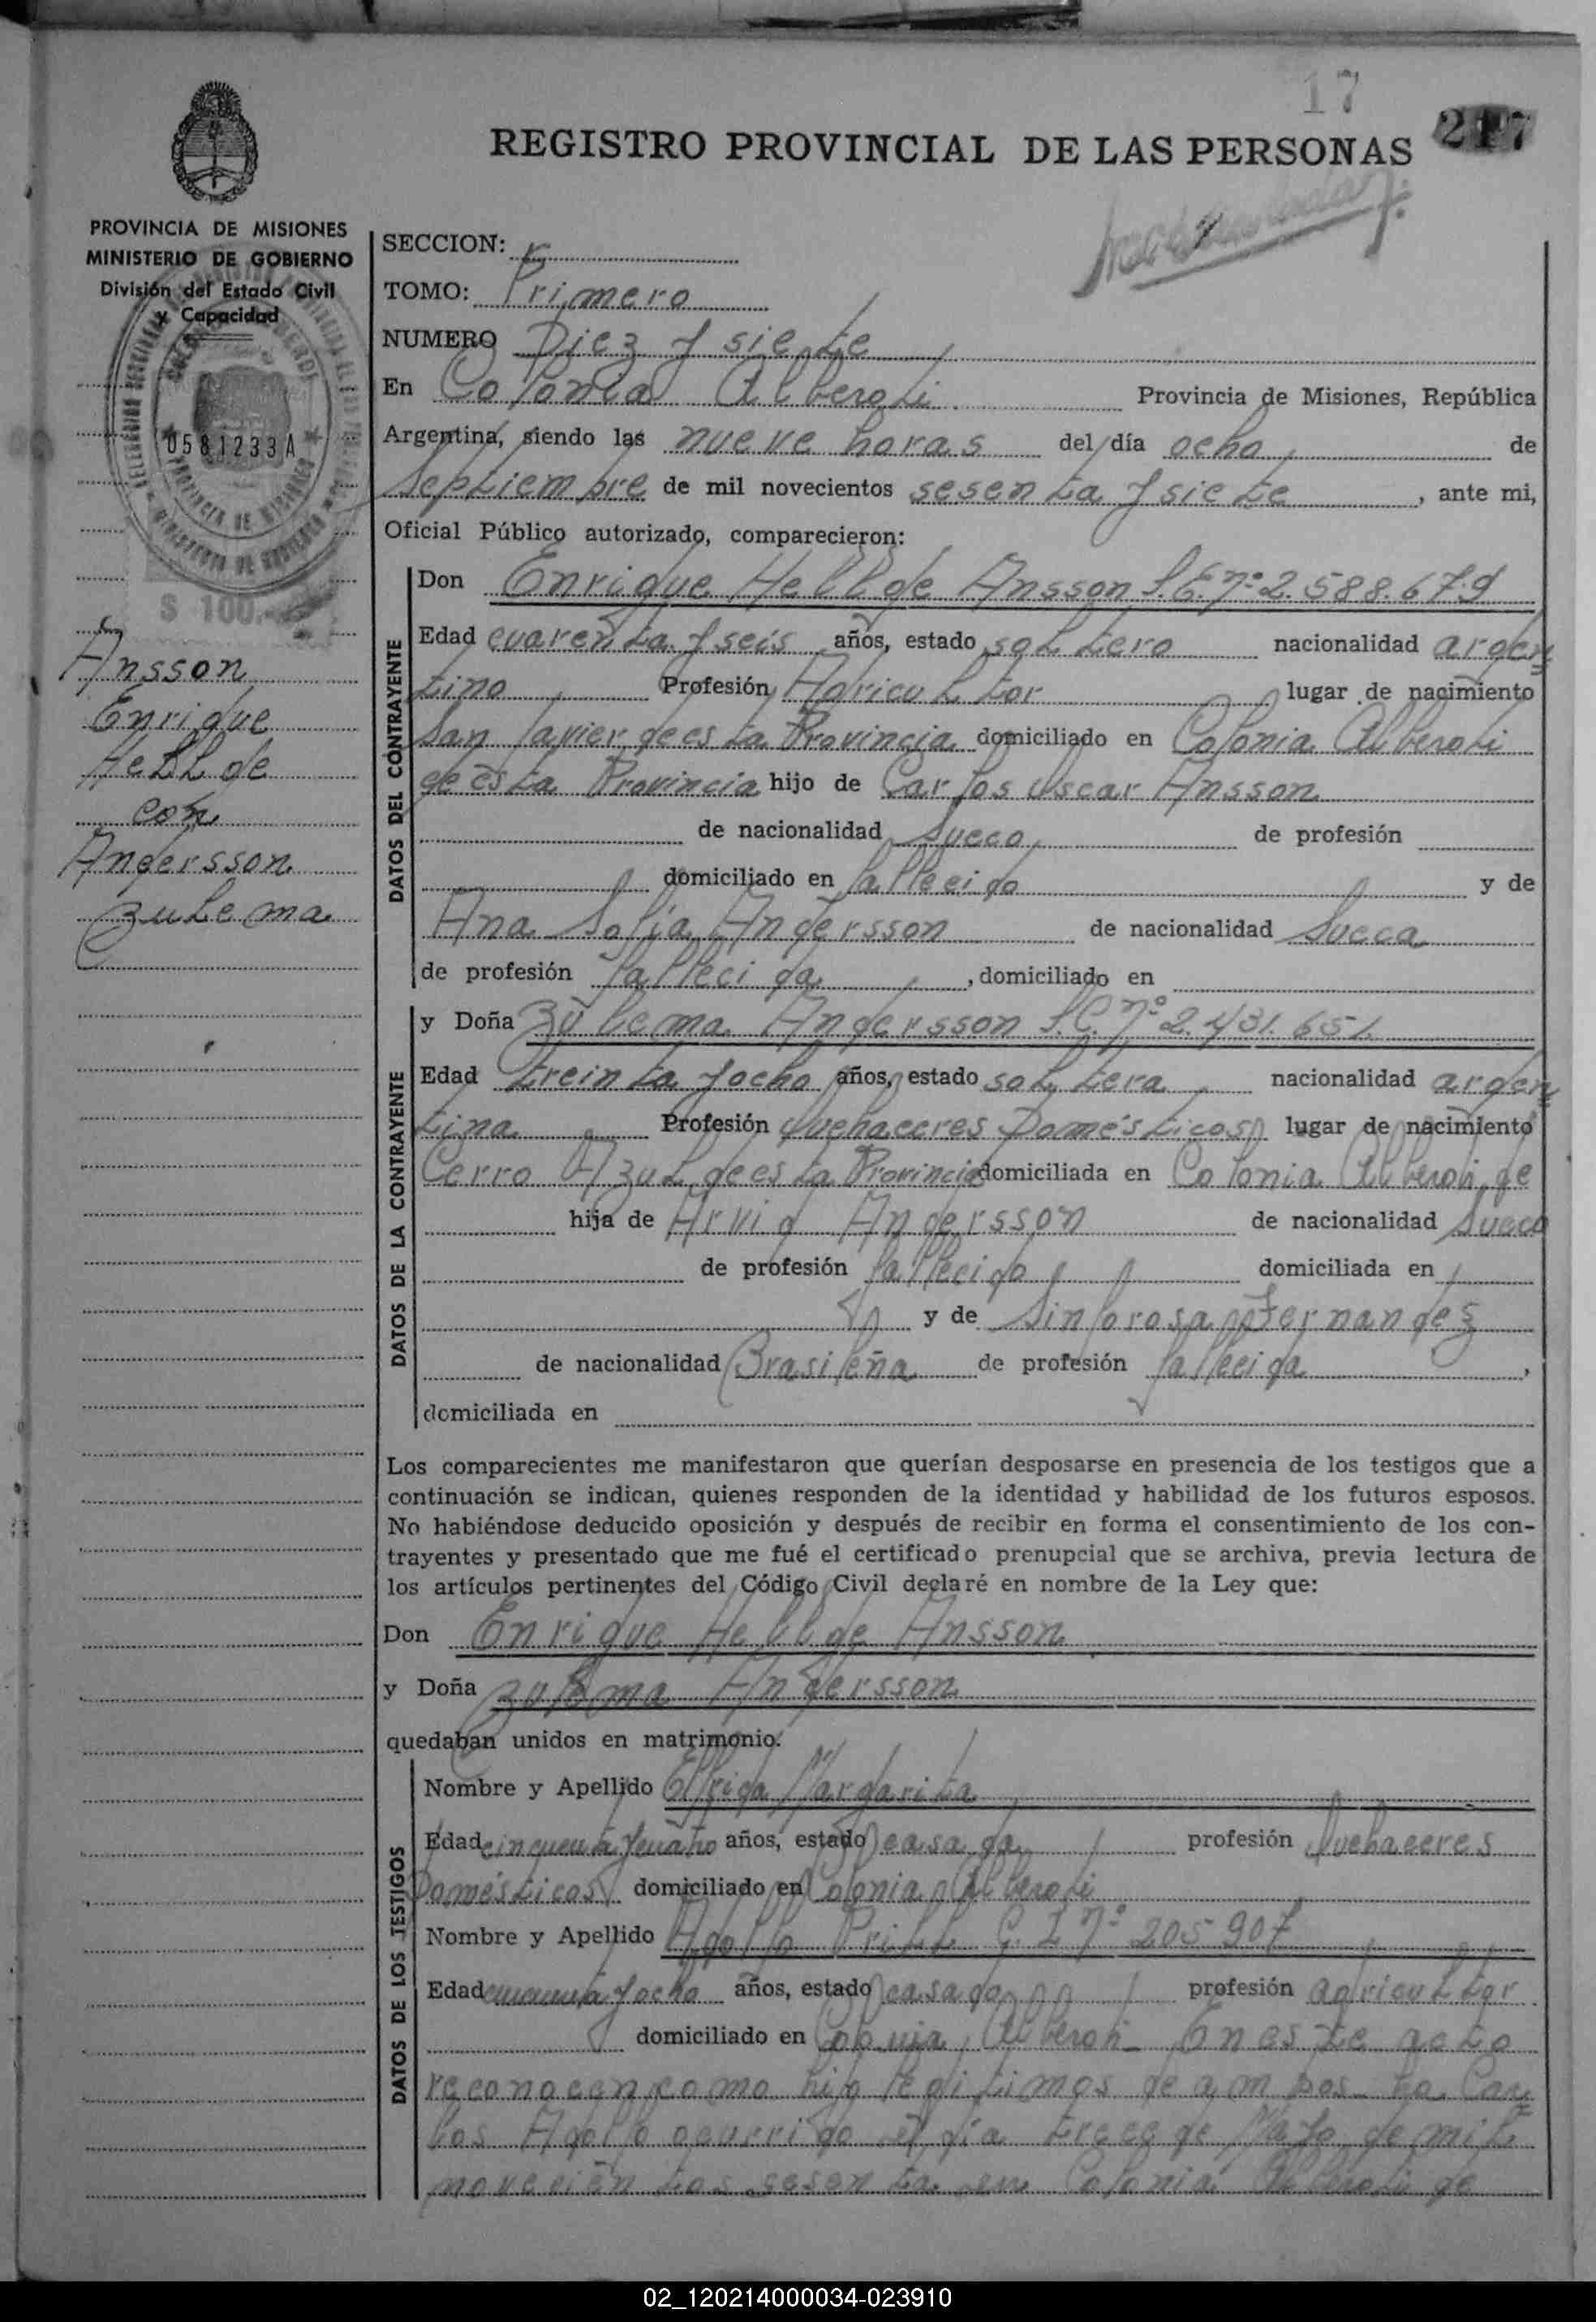 17
217
REGISTRO PROVINCIAL DE LAS PERSONAS
PROVINCIA DE MISIONES
MINISTERIO DE GOBIERNO
División del Estado Civil
y Capacidad
0581233A
$ 100.-
Ansson
Enrique
Hellde
con
Andersson
Zulema
SECCION:
TOMO: Primero
NUMERO Diez y siete
En Colonia Alberdi Provincia de Misiones, República
Argentina, siendo las nueve horas del día ocho de
Septiembre de mil novecientos sesenta y siete, ante mi,
Oficial Público autorizado, comparecieron:
DATOS DEL CONTRAYENTE
Don Enrique Hellde Ansson L.E. nº 2.588.679
Edad cuarenta y seis años, estado soltero nacionalidad argen
tino Profesión Agricultor lugar de nacimiento
San Javier de esta Provincia domiciliado en Colonia Alberdi
de esta Provincia hijo de Carlos Oscar Ansson
de nacionalidad Sueco de profesión
domiciliado en fallecido y de
Ana Sofía Andersson de nacionalidad Sueca
de profesión fallecida, domiciliado en
DATOS DE LA CONTRAYENTE
y Doña Zulema Andersson L.C. nº 2.431.651
Edad treinta y ocho años, estado soltera nacionalidad argen
tina Profesión Quehaceres Domésticos lugar de nacimiento
Cerro Azul de esta Provincia domiciliada en Colonia Alberdi de
hija de Arvid Andersson de nacionalidad Sueco
de profesión fallecido domiciliada en
y de Sinforosa Fernandez
de nacionalidad Brasileña de profesión fallecida,
domiciliada en
Los comparecientes me manifestaron que querían desposarse en presencia de los testigos que a
continuación se indican, quienes responden de la identidad y habilidad de los futuros esposos.
No habiéndose deducido oposición y después de recibir en forma el consentimiento de los con-
trayentes y presentado que me fué el certificado prenupcial que se archiva, previa lectura de
los artículos pertinentes del Código Civil declaré en nombre de la Ley que:
Don Enrique Hellde Ansson
y Doña Zulema Andersson
quedaban unidos en matrimonio.
DATOS DE LOS TESTIGOS
Nombre y Apellido Elfrida Margarita
Edad cincuenta y cuatro años, estado casada profesión Quehaceres
Domésticos domiciliado en Colonia Alberdi
Nombre y Apellido Adolfo Prill C. I nº 205907
Edad cincuenta y ocho años, estado casado profesión agricultor
domiciliado en Colonia Alberdi_ En este acto
reconocen como hijo legitimos de ambos Car
los Adolfo ocurrido el día trece de Mayo de mil
novecientos sesenta en Colonia Alberdi de
02_120214000034-023910